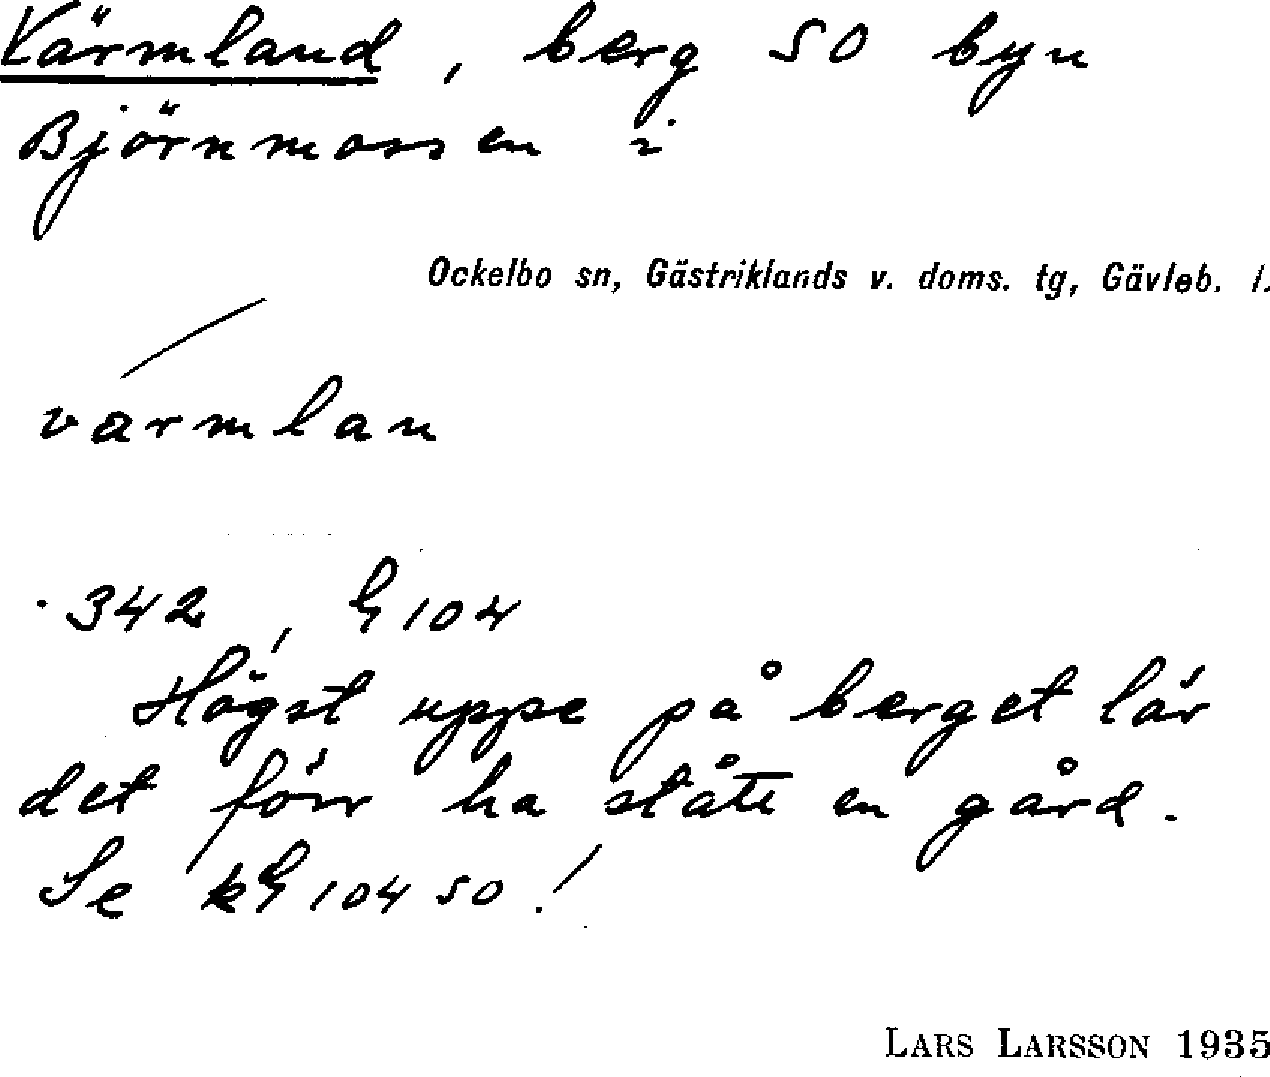 Värmland, berg SO byn
Björnmossen i
Ockelbo sn, Gästriklands v. doms. tg, Gävleb. l.
värmlan
342, G 104
Högst uppe på berget lär
det förr ha stått en gård.
Se kG 104 SO!
LARS LARSSON 1935